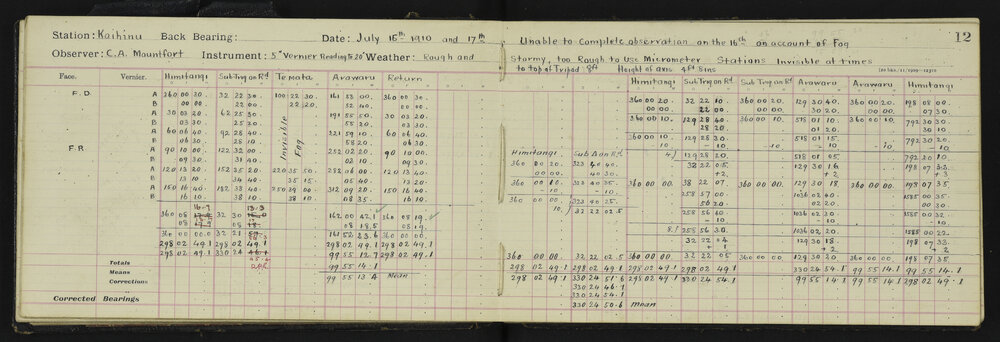 Station: Kaihinu Back Bearing: Date: July 16th 1910 and 17th
Observer: C.A. Mountfort Instrument: 5" Vernier Reading to 20" Weather: Rough and
Face. Vernier. Himitangi Sub Trig on Rd Te mata Arawaru Return
F.D. A 360 00 30. 32 22 30. 100 22 30. 161 53 00. 360 00 30.
B 00 00. 22 00. 22 20. 52 40. 00 00.
A 30 03 20. 62 25 30. 191 55 50. 30 03 20.
B 03 00. 25 30. 55 20. 03 30.
A 60 06 40. 92 28 40. 221 59 10. 60 06 40.
B 06 30. 28 10. 58 20. 06 30.
F.R. A 90 10 00. 122 32 00. 252 02 20. 90 10 00.
B 09 30. 31 40. 02 10. 09 30.
A 120 13 20. 152 35 20. 220 35 50. 282 06 00. 120 13 40.
B 13 10. 34 40. 35 15. 05 40. 13 20.
A 150 16 40. 182 38 40. 250 39 00. 312 09 20. 150 16 40.
B 16 10. 38 10. 38 10. 08 35. 16 10.
Invisible
Fog
360 08 32 30 162 00 42.1 360 08 19.
08 08 08 18.5 08 19.
360 00 00.0 32 21 161 52 23.6 360 00 00.
298 02 49.1 298 02 49.1 298 02 49.1 298 02 49.1
298 02 49.1 330 24 99 55 12.7 298 02 49.1
Totals 99 55 14.1
Means 99 55 13.4 Mean
Corrections
Corrected Bearings
12
Unable to complete observation on the 16th on account of Fog
Stormy, too Rough to Use Micrometer Stations Invisible at times
to top of Tripod 8ft Height of axis 4ft 8ins
Himitangi Sub Trig on Rd Sub Trig on Rd Arawaru Arawaru Himitangi
360 00 20. 32 22 10. 360 00 20. 129 30 40. 360 00 20. 198 08 00.
00 00. 22 00. 00 00. 30 20. 00 00. 07 30.
360 00 10. 129 28 40 360 00 10. 518 01 10. 360 00 10. 792 30 30.
28 20. 01 20. 30 10
360 00 10 129 28 30 518 01 15. 792 30 20.
- 10 - 10 - 10 - 10
Himitangi Sub Δ on Rd 4) 129 28 20. 518 01 05. 792 20 10.
360 00 20. 323 40 40. 32 22 05. 129 30 16 198 07 32.
00 00. 40 30. +2 +2 +3
360 00 10 323 40 35. 360 00 00. 32 22 07. 360 00 00. 129 30 18 360 00 00. 198 07 35.
- 10 - 10 258 57 00 1036 02 40 1585 00 30.
360 00 00. 323 40 25. 56 20 02 20. 00 35
10) 32 22 02.5 258 56 40 1036 02 30. 1585 00 32.
- 10 - 10 - 10
8) 258 56 30. 1036 02 20. 1585 00 22
32 22 04 129 30 18. 198 07 33.
+ 1 + 2 + 2
360 00 00. 32 22 02.5 360 00 00. 32 22 05 360 00 00 129 30 20 360 00 00. 198 07 35.
298 02 49.1 298 02 49.1 298 02 49.1 298 02 49.1 330 24 54.1 99 55 14.1 99 55 14.1
298 02 49.1 330 24 51.6 298 02 49.1 330 24 54.1 99 55 14.1 99 55 14.1 298 02 49.1
330 24 46.1
330 24 54.1
330 24 50.6 mean